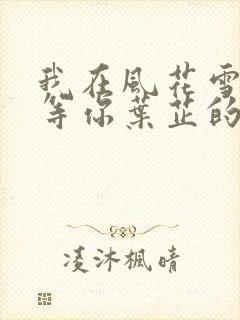 我在風花雪
等你葉芷的
凌沐楓晴